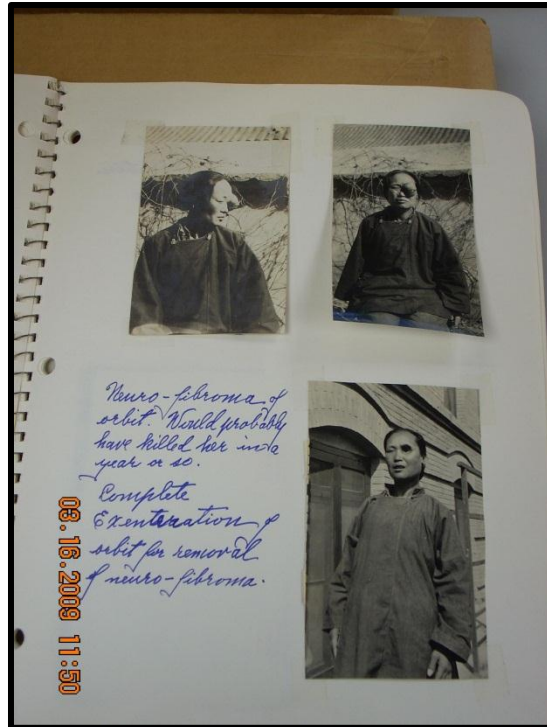 Neuro-fibroma of
orbit. Would probably
have killed her in a
year or so.
Complete
Exenteration of
orbit for removal
of neuro-fibroma.
03.16.2009 11:50